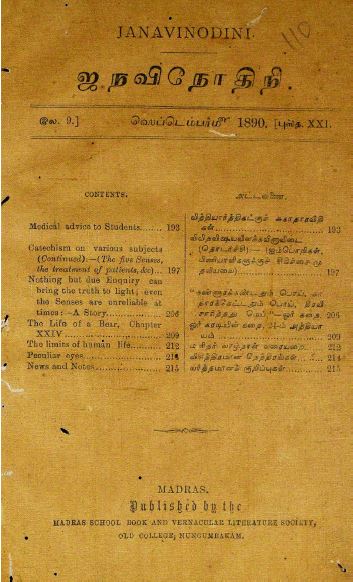 110
JANAVINODINI.
ஜநவிநோதிநி.
செப்டெம்பர்மீ 1890. [புஸ்த. XXI.
CONTENTS.
Medical advice to Students....... 193
Catechism on various subjects
(Continued):—(The five Senses,
the treatment of patients, &c)... 197
Nothing but due Enquiry can
bring the truth to light; even
the Senses are unreliable at
times:—A Story.................. 206
The Life of a Bear, Chapter
XXIV............................ 209
The limits of human life......... 212
Peculiar eyes.................... 214
News and Notes................... 215
அட்டவணை.
வித்தியார்த்திகட்குச் சுகாதாரவிதி
கள்........................ 193
(தொடர்ச்சி):—(ஐம்பொறிகள்,
பிணியாளிகளுக்குச் சிகிச்சை மு
தலியவை)................. 197
"கண்ணாக்கண்டதும் பொய், கா
தாரக்கேட்டதும் பொய், 
மெய்"—ஓர் கதை. 206
ஓர் கரடியின் கதை, 24-ம் அத்தியா
யம்...................... 209
மனிதர் வாழ்நாள் வரையறை..... 212
விசித்திரமான நேத்திரங்கள்... 214
வர்த்தமானக் குறிப்புகள்...... 215
MADRAS.
Published by the
MADRAS SCHOOL BOOK AND VERNACULAR LITERATURE SOCIETY,
OLD COLLEGE, NUNGUMBAKAM.